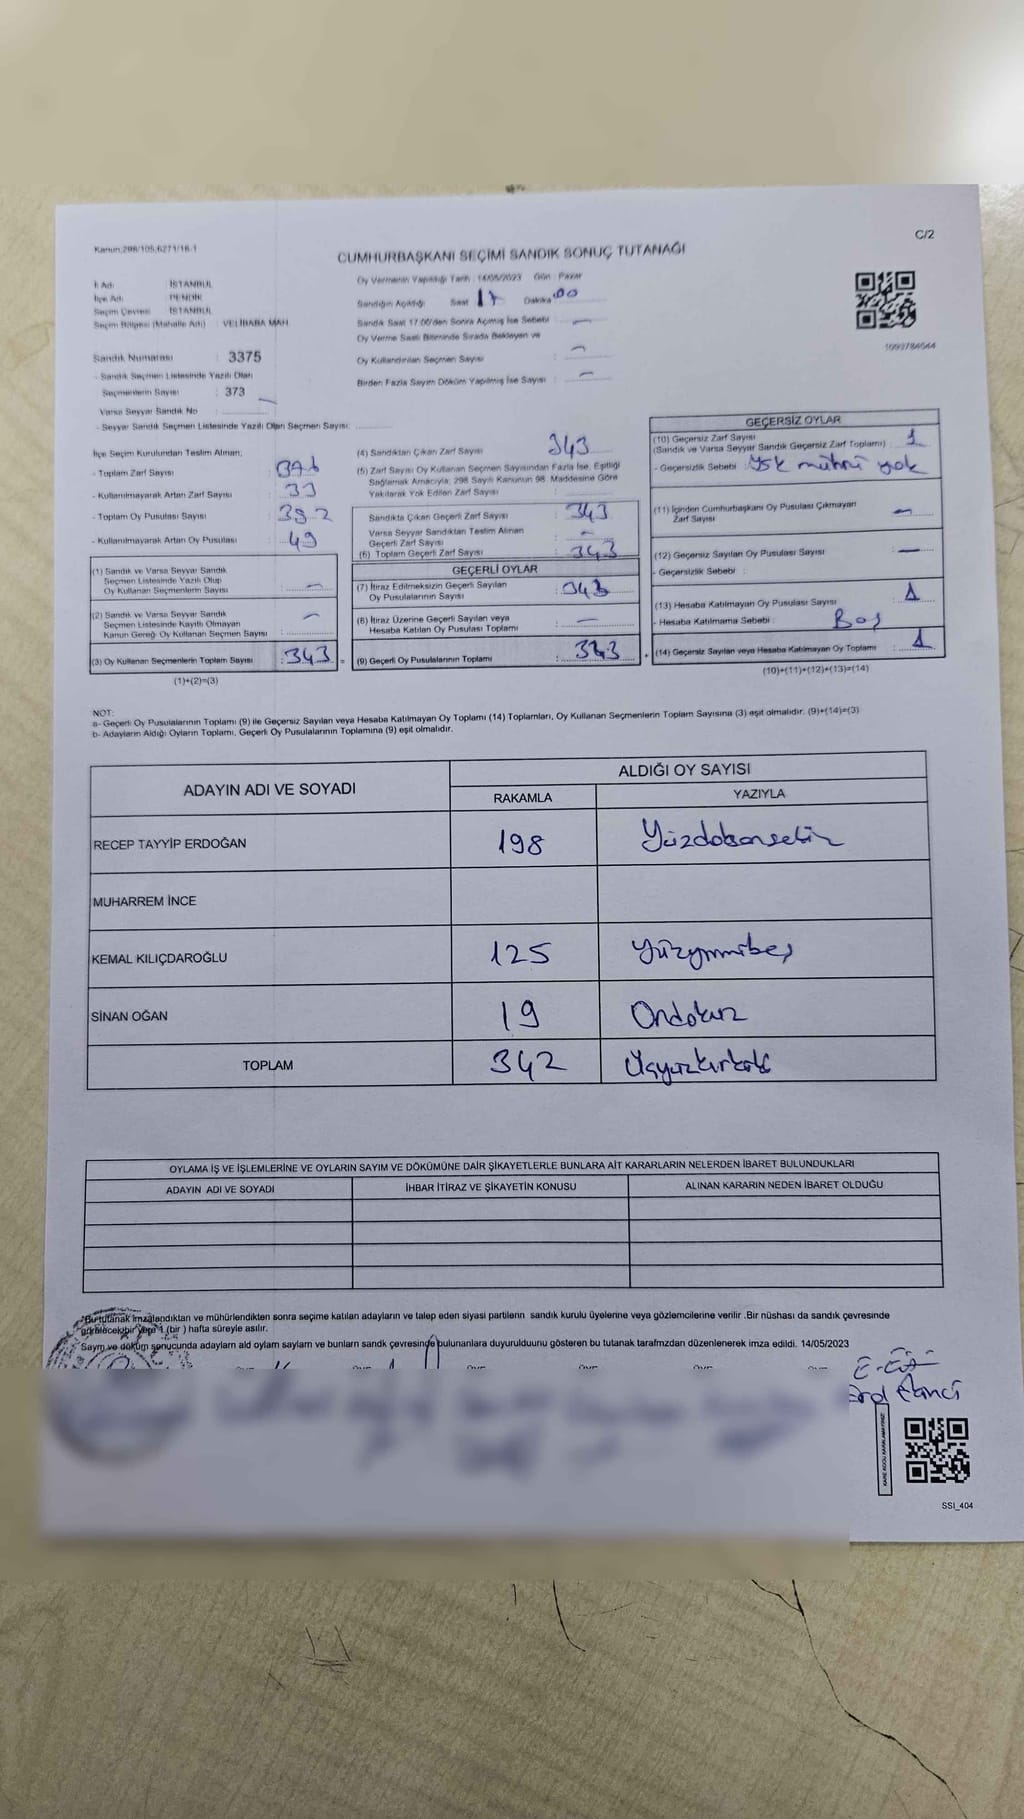 Kanun:298/105,6271/18-1
C/2
CUMHURBAŞKANI SEÇİMİ SANDIK SONUÇ TUTANAĞI
İl Adı : İSTANBUL
İlçe Adı : PENDİK
Seçim Çevresi : İSTANBUL
Seçim Bölgesi (Mahalle Adı) : VELİBABA MAH.
Sandık Numarası : 3375
- Sandık Seçmen Listesinde Yazılı Olan
Seçmenlerin Sayısı : 373
Varsa Seyyar Sandık No :
- Seyyar Sandık Seçmen Listesinde Yazılı Olan Seçmen Sayısı:
Oy Vermenin Yapıldığı Tarih : 14/05/2023 Gün : Pazar
Sandığın Açıldığı Saat 17 Dakika 00
Sandık Saat 17.00'den Sonra Açılmış İse Sebebi : —
Oy Verme Saati Bitiminde Sırada Bekleyen ve
Oy Kullandırılan Seçmen Sayısı : —
Birden Fazla Sayım Döküm Yapılmış İse Sayısı : —
1093784644
İlçe Seçim Kurulundan Teslim Alınan;
- Toplam Zarf Sayısı : 376
- Kullanılmayarak Artan Zarf Sayısı : 33
- Toplam Oy Pusulası Sayısı : 392
- Kullanılmayarak Artan Oy Pusulası : 49
(1) Sandık ve Varsa Seyyar Sandık
Seçmen Listesinde Yazılı Olup
Oy Kullanan Seçmenlerin Sayısı : —
(2) Sandık ve Varsa Seyyar Sandık
Seçmen Listesinde Kayıtlı Olmayan
Kanun Gereği Oy Kullanan Seçmen Sayısı : —
(3) Oy Kullanan Seçmenlerin Toplam Sayısı : 343
(1)+(2)=(3)
(4) Sandıktan Çıkan Zarf Sayısı : 343
(5) Zarf Sayısı Oy Kullanan Seçmen Sayısından Fazla İse, Eşitliği
Sağlamak Amacıyla, 298 Sayılı Kanunun 98. Maddesine Göre
Yakılarak Yok Edilen Zarf Sayısı :
Sandıkta Çıkan Geçerli Zarf Sayısı : 343
Varsa Seyyar Sandıktan Teslim Alınan
Geçerli Zarf Sayısı : —
(6) Toplam Geçerli Zarf Sayısı : 343
GEÇERLİ OYLAR
(7) İtiraz Edilmeksizin Geçerli Sayılan
Oy Pusulalarının Sayısı : 343
(8) İtiraz Üzerine Geçerli Sayılan veya
Hesaba Katılan Oy Pusulası Toplamı : —
(9) Geçerli Oy Pusulalarının Toplamı : 343
GEÇERSİZ OYLAR
(10) Geçersiz Zarf Sayısı
(Sandık ve Varsa Seyyar Sandık Geçersiz Zarf Toplamı) : 1
- Geçersizlik Sebebi : Ysk mührü yok
(11) İçinden Cumhurbaşkanı Oy Pusulası Çıkmayan
Zarf Sayısı : —
(12) Geçersiz Sayılan Oy Pusulası Sayısı : —
- Geçersizlik Sebebi :
(13) Hesaba Katılmayan Oy Pusulası Sayısı : 1
- Hesaba Katılmama Sebebi : Boş
(14) Geçersiz Sayılan veya Hesaba Katılmayan Oy Toplamı : 1
(10)+(11)+(12)+(13)=(14)
NOT:
a- Geçerli Oy Pusulalarının Toplamı (9) ile Geçersiz Sayılan veya Hesaba Katılmayan Oy Toplamı (14) Toplamları, Oy Kullanan Seçmenlerin Toplam Sayısına (3) eşit olmalıdır. (9)+(14)=(3)
b- Adayların Aldığı Oyların Toplamı, Geçerli Oy Pusulalarının Toplamına (9) eşit olmalıdır.
ADAYIN ADI VE SOYADI
ALDIĞI OY SAYISI
RAKAMLA YAZIYLA
RECEP TAYYİP ERDOĞAN 198 Yüzdoksansekiz
MUHARREM İNCE
KEMAL KILIÇDAROĞLU 125 Yüzyirmibeş
SİNAN OĞAN 19 Ondokuz
TOPLAM 342 Üçyüzkırkiki
OYLAMA İŞ VE İŞLEMLERİNE VE OYLARIN SAYIM VE DÖKÜMÜNE DAİR ŞİKAYETLERLE BUNLARA AİT KARARLARIN NELERDEN İBARET BULUNDUKLARI
ADAYIN ADI VE SOYADI İHBAR İTİRAZ VE ŞİKAYETİN KONUSU ALINAN KARARIN NEDEN İBARET OLDUĞU
*Bu tutanak imzalandıktan ve mühürlendikten sonra seçime katılan adayların ve talep eden siyasi partilerin sandık kurulu üyelerine veya gözlemcilerine verilir .Bir nüshası da sandık çevresinde
görülecek bir yere 1 (bir ) hafta süreyle asılır.
Sayım ve döküm sonucunda adayların ald oylam saylam ve bunların sandk çevresinde bulunanlara duyurulduunu gösteren bu tutanak tarafmzdan düzenlenerek imza edildi. 14/05/2023
SSI_404